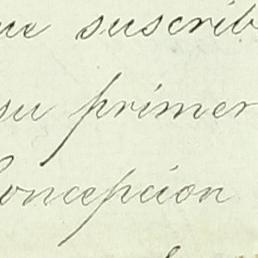 que suscrib
su primer
Concepcion